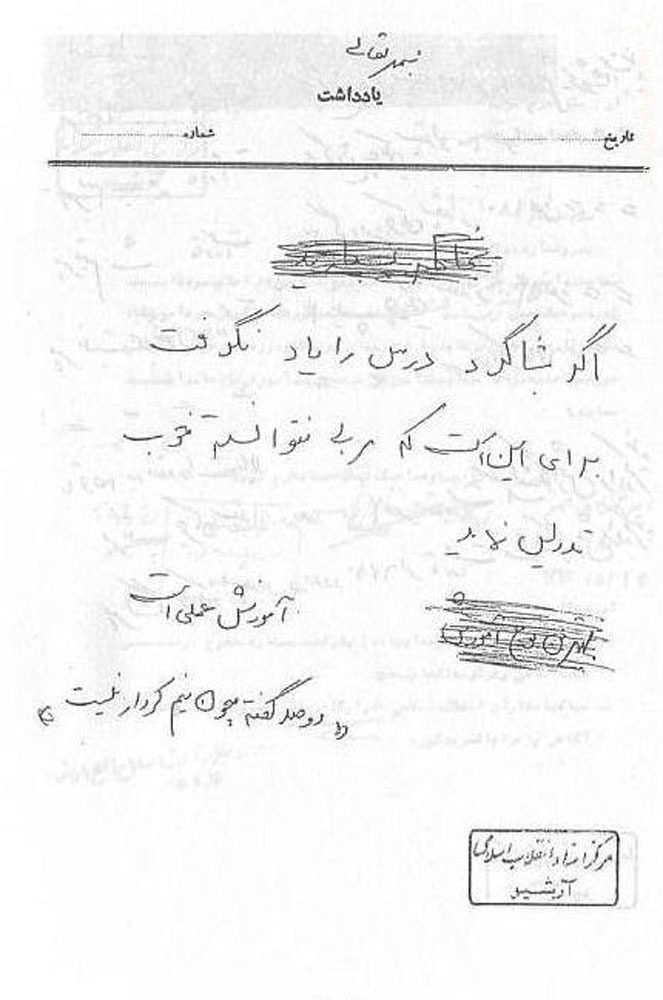 بسمه تعالی
یادداشت
تاریخ
شماره
اگر شاگرد درس را یاد نگرفت
برای این است که مربی نتوانسته خوب
تدریس نماید
بهترین نوع آموزش
آموزش عملی است
«دو صد گفته چون نیم کردار نیست»
مرکز اسناد انقلاب اسلامی
آرشیو